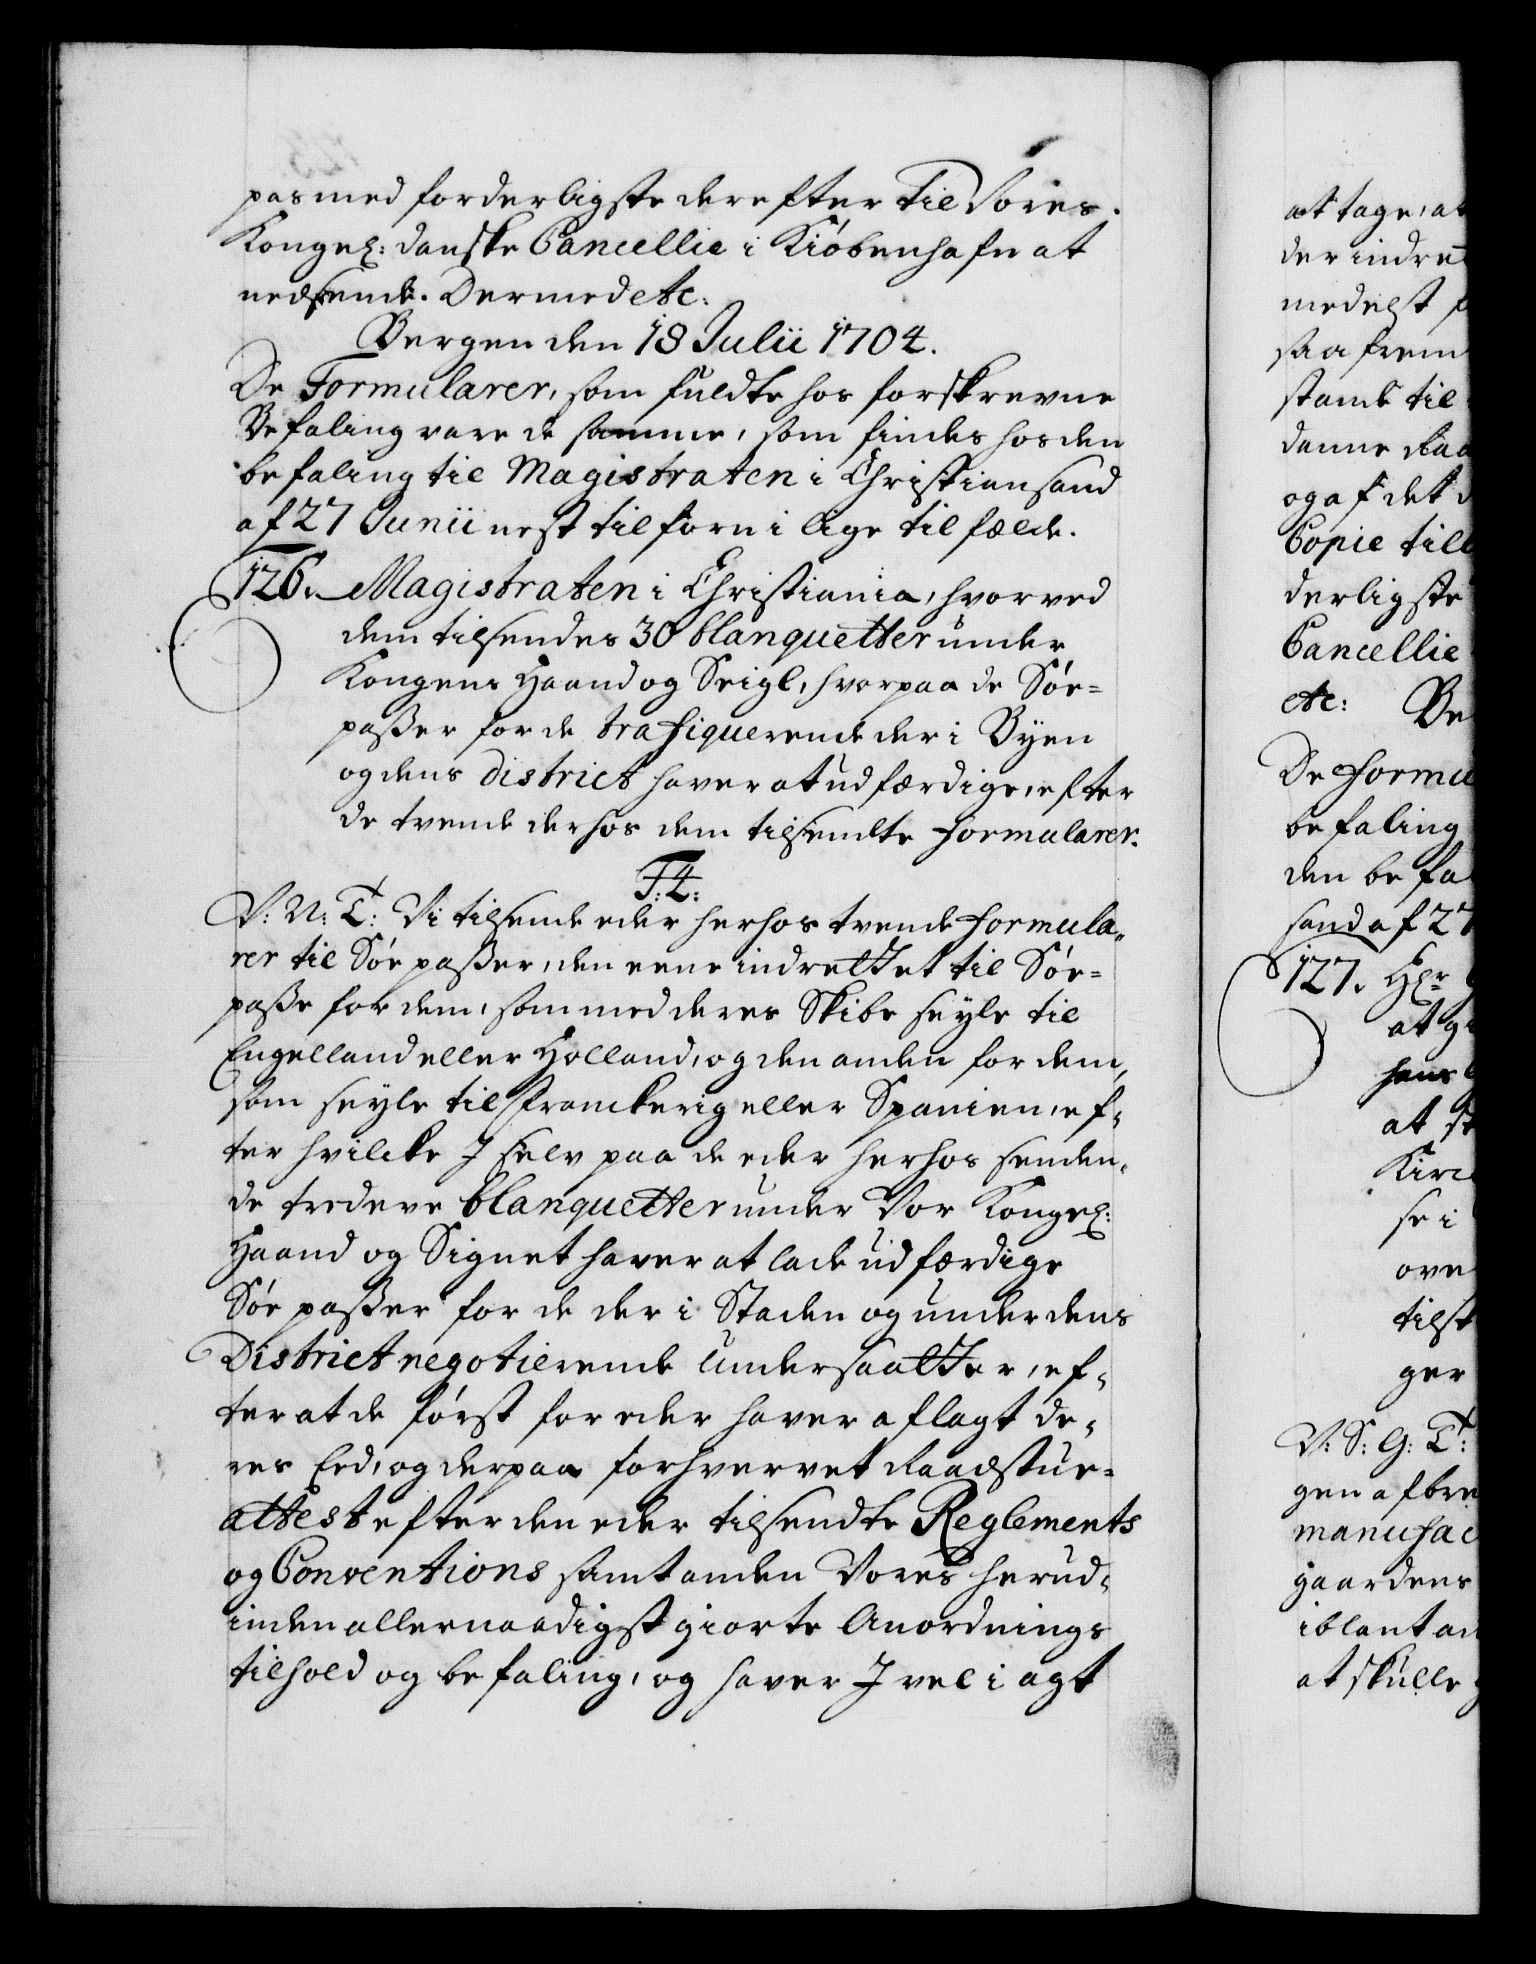 pas med forderligste derefter til Vores
Kongel: danske Cancellie i Kiöbenhafn at
nedsende. Dermed etc:
Bergen den 18 Julii 1704.
De Formularer, som fuldte hos forskrevne
Befaling vare de samme, som findes hos den
befaling til Magistraten i Christiansand
af 27 Junii nest tilforn i lige tilfælde.
126. Magistraten i Christiania, hvorved
dem tilsendes 30 blanquetter under
Kongens Haand og Seigl, hvorpaa de Söe=
passer for de trafiquerende der i Byen
og dens District haver at udfærdige, efter
de tvende derhos dem tilsendte formularer.
F: 4:
V: N: T: Vi tilsende eder herhos tvende formula„
rer til Söe passer, den eene indrettet til Söe=
passe for dem, som med deres Skibe seyle til
Engelland eller Holland, og den anden for dem,
som seyle til Franckerig eller Spanien, ef„
ter hvilcke I selv paa de eder herhos senden„
de tredeve blanquetter under Vor Kongel:
Haand og Signet haver at lade udfærdige
Söe passer for de der i Staden og under dens
District negotierende Undersaatter, ef„
ter at de först for eder haver aflagt de„
res Eed, og derpaa forhvervet Raadstue=
attest efter den eder tilsendte Reglements
og Conventions samt anden Vores herud„
inden allernaadigst giorte Anordnings
tilhold og befaling, og haver I vel i agt
at tage, at
der indre
medelst
saa frem
stande til
danne Raa
og af det
Copie till
derligste
Cancellie
etc: Be
De Formu
befaling
den befa
sand af 27
127. Hr
at g
hans
at
Kirc
se i
ove
tilst
ger
V: S: G: T:
gen afbre
manufac
gaardens
iblant an
at skulle